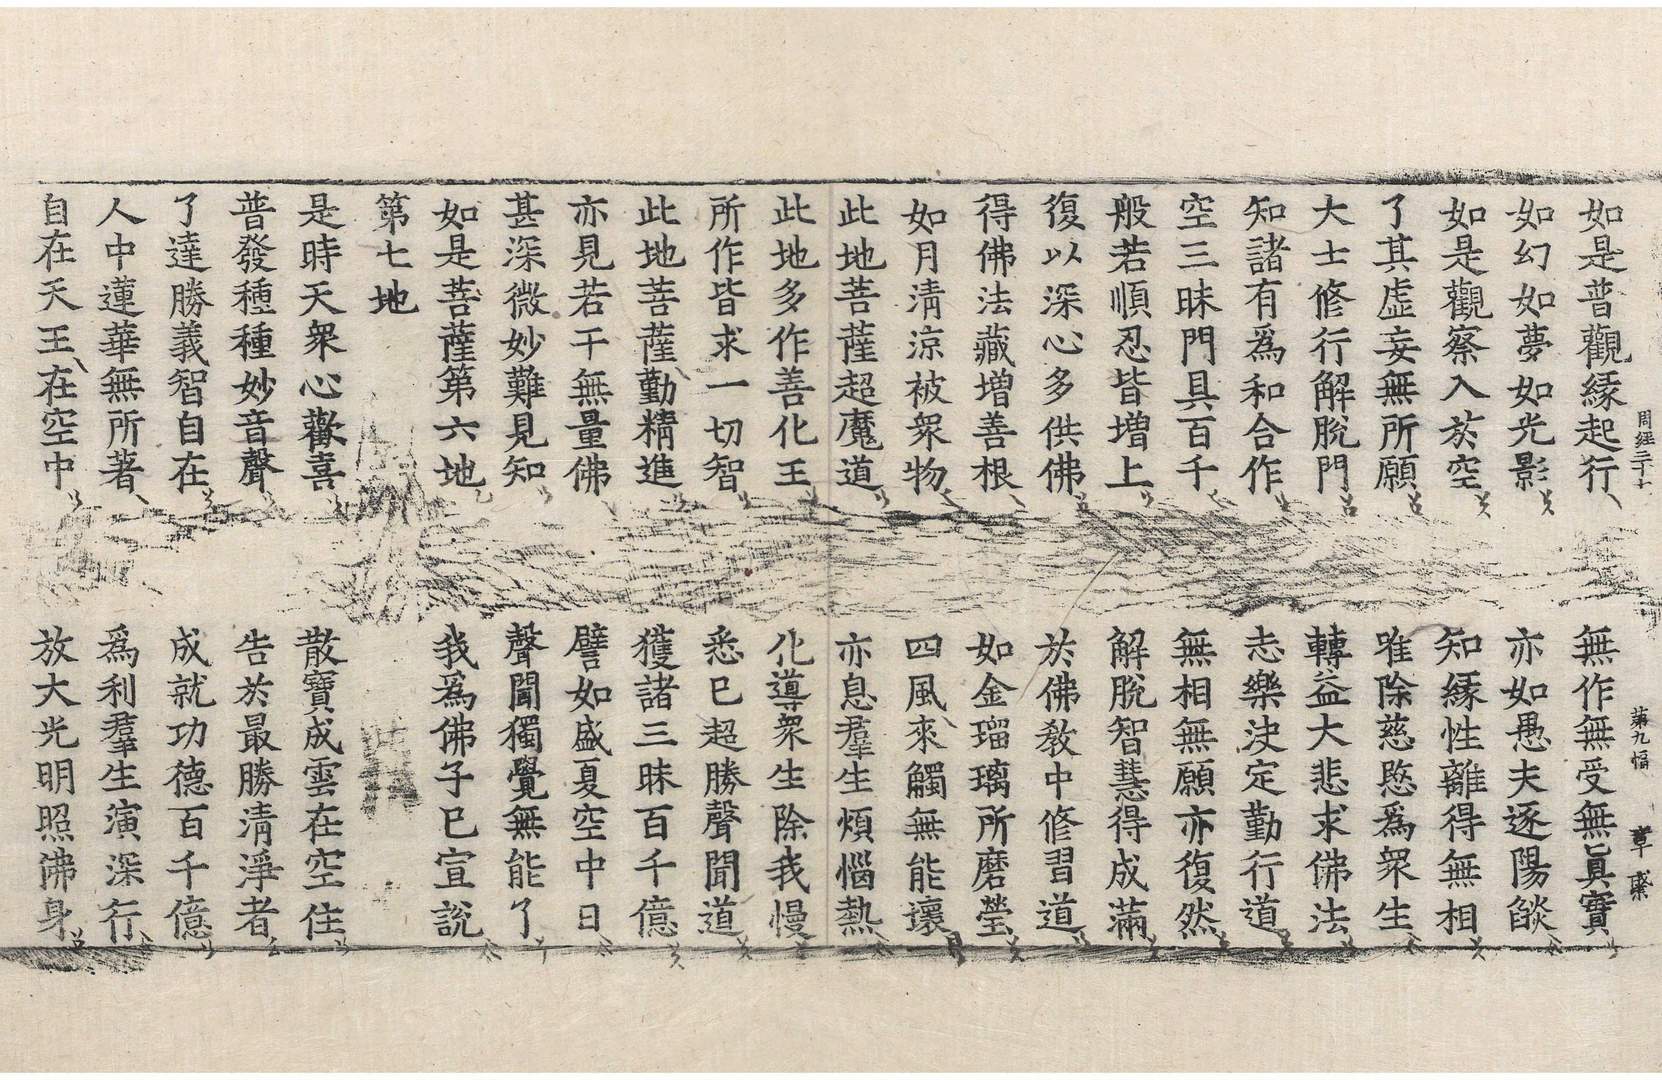 如是普觀緣起行　無作無受無眞實
如幻如夢如光影　亦如愚夫逐陽燄
如是觀察入於空　知緣性離得無相
了其虛妄無所願　唯除慈愍爲衆生
大士修行解脫門　轉益大悲求佛法
知諸有爲和合作　志樂決定勤行道
空三昧門具百千　無相無願亦復然
般若順忍皆增上　解脫智慧得成滿
復以深心多供佛　於佛教中修習道
得佛法藏增善根　如金瑠璃所磨瑩
如月清涼被衆物　四風來觸無能壞
此地菩薩超魔道　亦息羣生煩惱熱
此地多作善化王　化導衆生除我慢
所作皆求一切智　悉已超勝聲聞道
此地菩薩勤精進　獲諸三昧百千億
亦見若干無量佛　譬如盛夏空中日
甚深微妙難見知　聲聞獨覺無能了
如是菩薩第六地　我爲佛子已宣說
第七地
是時天衆心歡喜　散寶成雲在空住
普發種種妙音聲　告於最勝清淨者
了達勝義智自在　成就功德百千億
人中蓮華無所著　爲利羣生演深行
自在天王在空中　放大光明照佛身
周經三十七　第九幅